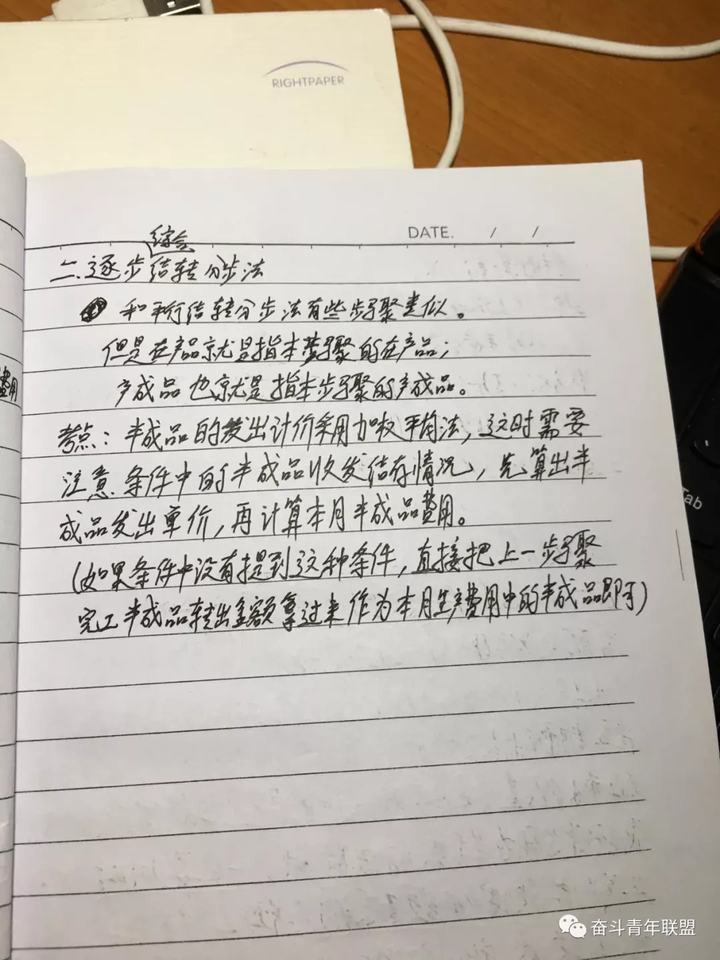 RIGHTPAPER
DATE. / /
综合
二.逐步结转分步法
和平行结转分步法有些步骤类似。
但是在产品就是指本步骤的在产品；
产成品也就是指本步骤的产成品。
考点：半成品的发出计价采用加权平均法，这时需要
注意条件中的半成品收发结存情况，先算出半
成品发出单价，再计算本月半成品费用。
(如果条件中没有提到这种条件，直接把上一步骤
完工半成品转出金额拿过来作为本月生产费用中的半成品即可)
费用
Tab
奋斗青年联盟